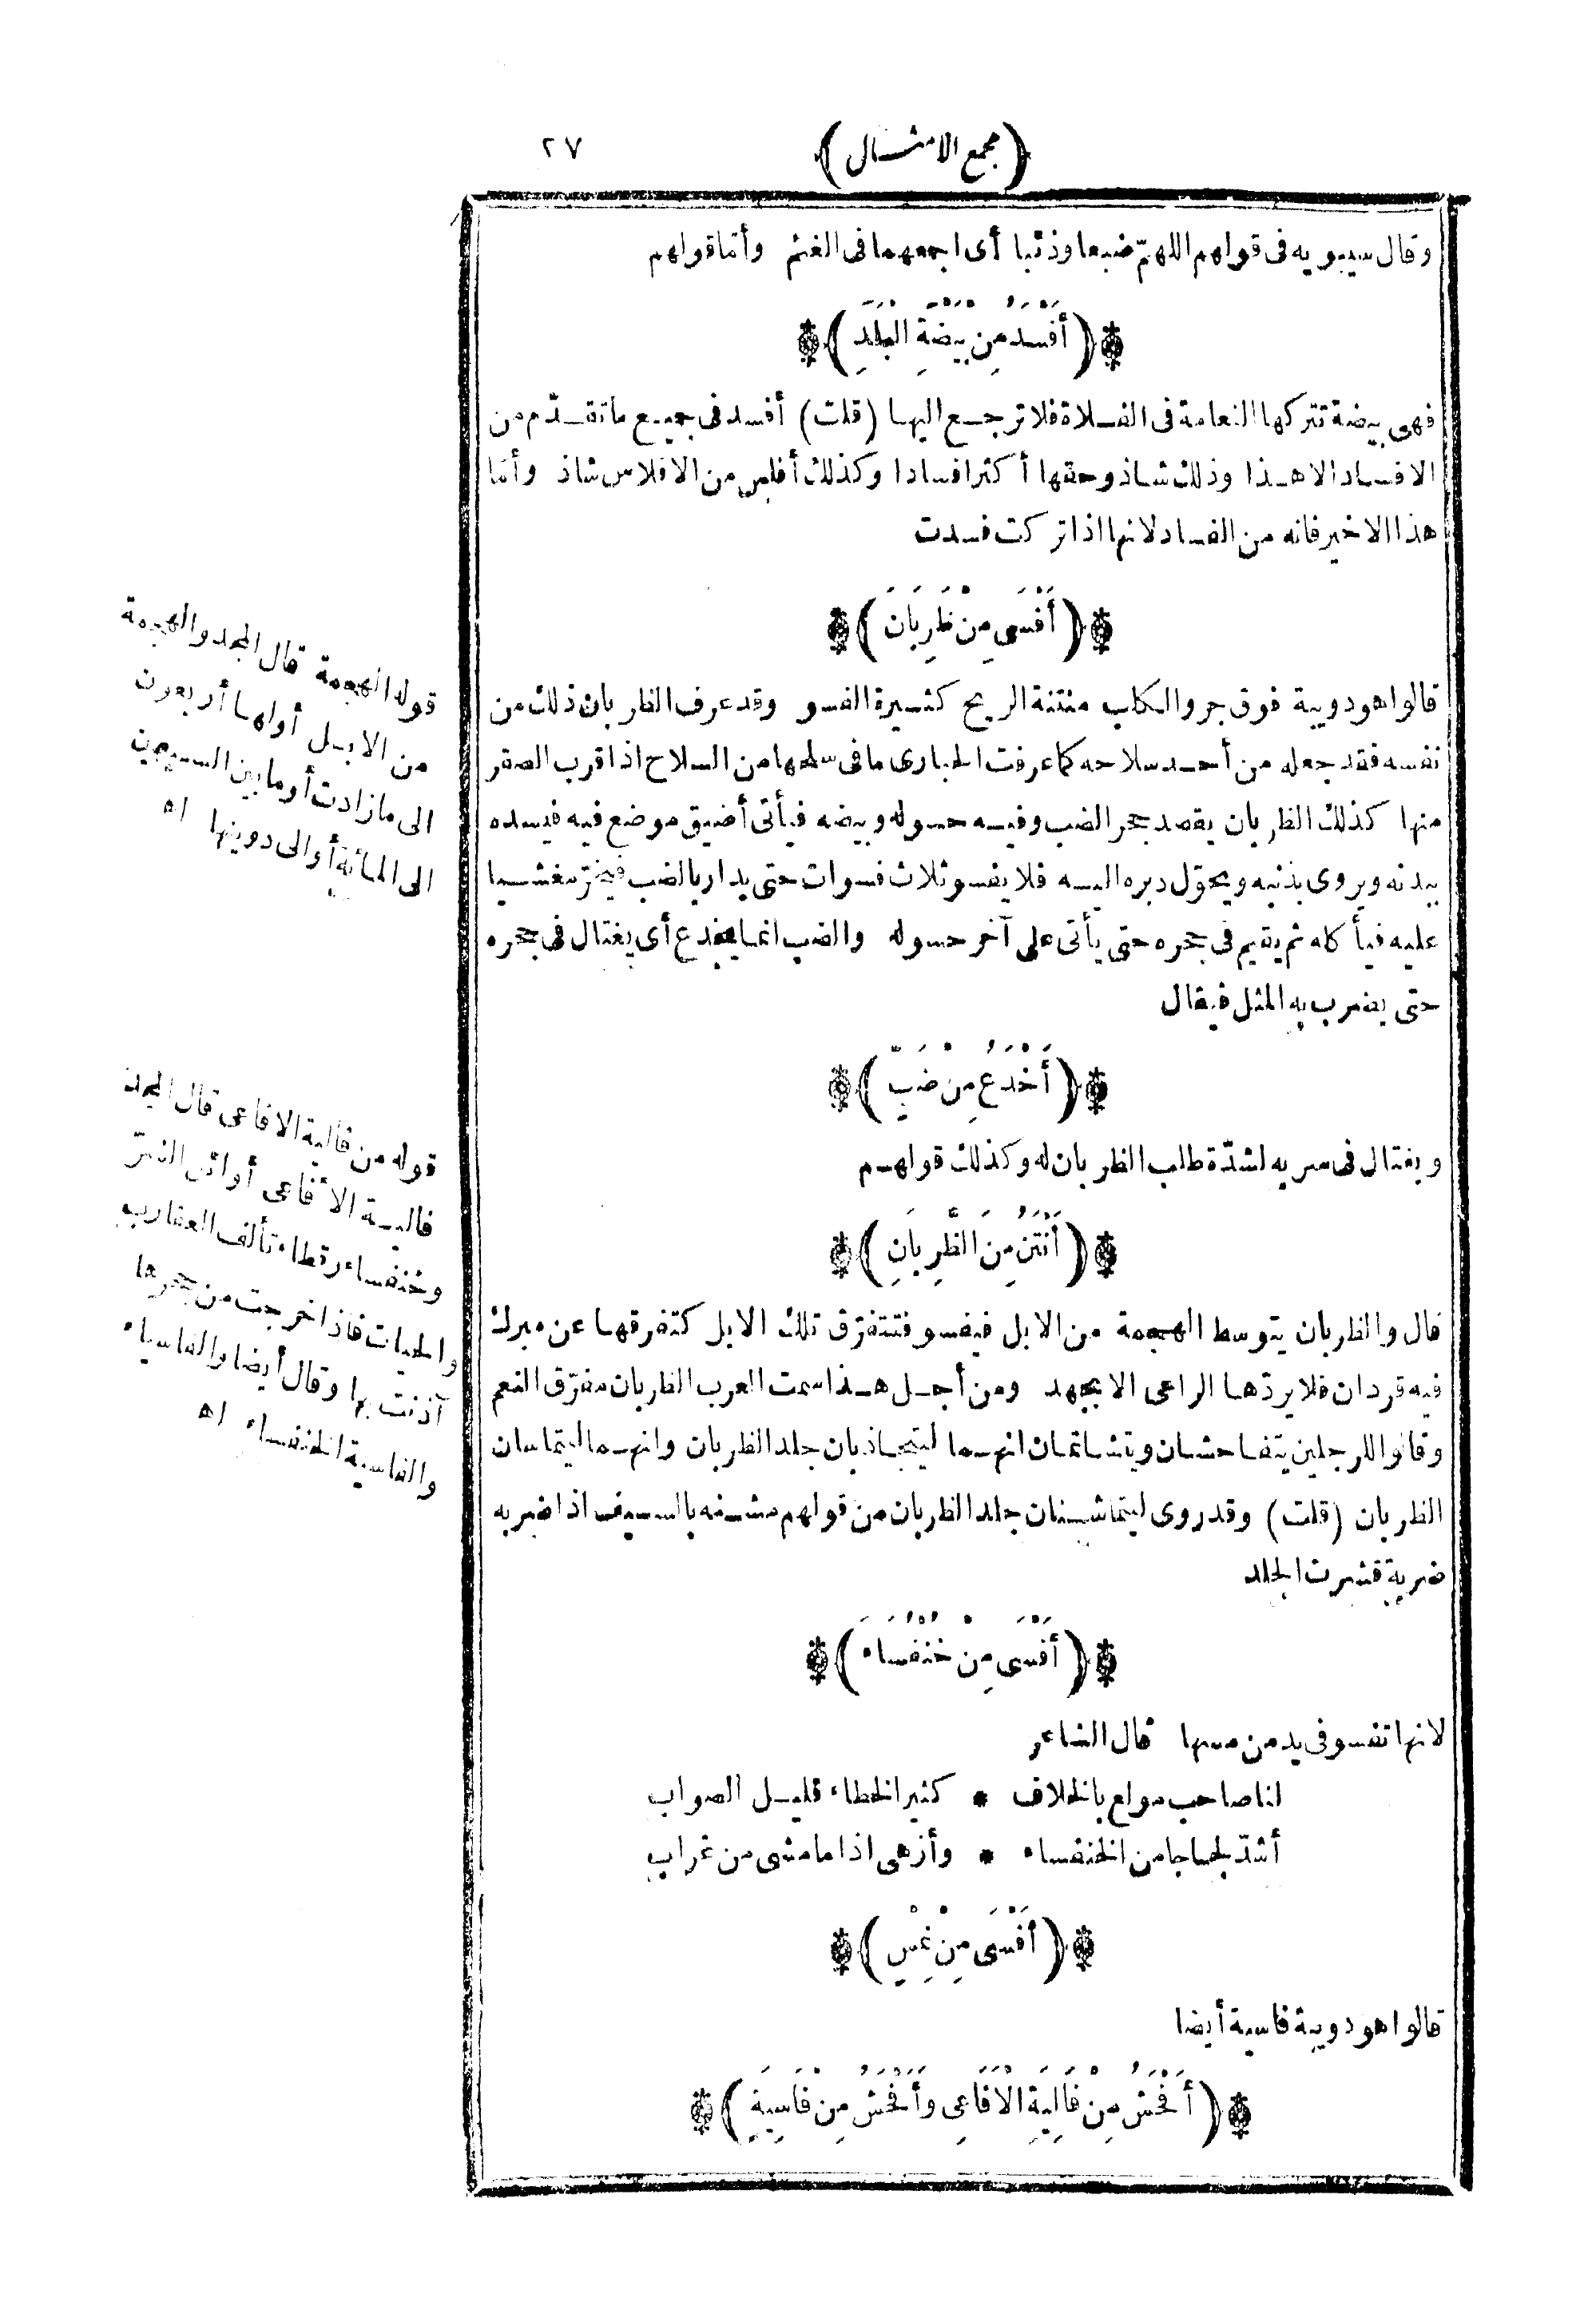 (مجمع الامثال)
٢٧
وقال سيبويه فى قولهم اللهمّ ضبعا وذئبا أى اجمعهما فى الغنم وأمّا قولهم
(أَفْسَدُ مِنْ بَيْضَةِ الْبَلَدِ)
فهى بيضة تتركها النعامة فى الفلاة فلا ترجع اليها (قلت) أفسد فى جميع ما تقدّم من
الافساد الا هذا وذلك شاذ وحقها أكثر افسادا وكذلك أفلس من الافلاس شاذ وأمّا
هذا الاخير فانه من الفساد لانها اذا تركت فسدت
(أَفْسَى مِنْ ظَرِبَانَ)
قالوا هو دويبة فوق جرو الكلب منتنة الريح كثيرة الفسو وقد عرف الظربان ذلك من
نفسه فقد جعله من أحد سلاحه كما عرفت الحبارى ما فى سلحها من السلاح اذا قرب الصقر
منها كذلك الظربان يقصد جحر الضب وفيه حسوله وبيضه فيأتى أضيق موضع فيه فيسده
ببدنه ويروى بذنبه ويحوّل دبره اليه فلا يفسو ثلاث فسوات حتى يدار بالضب فيخرّ مغشيا
عليه فيأكله ثم يقيم فى جحره حتى يأتى على آخر حسوله والضب انما يخدع أى يغتال فى جحره
حتى يضرب به المثل فيقال
(أَخْدَعُ مِنْ ضَبٍّ)
ويغتال فى سربه لشدّة طلب الظربان له وكذلك قولهم
(أَنْتَنُ مِنَ الظَّرِبَانِ)
قال والظربان يتوسط الهجمة من الابل فيفسو فتتفرّق تلك الابل كتفرقها عن مبرك
فيه قردان فلا يردّها الراعى الا بجهد ومن أجل هذا سمت العرب الظربان مفرّق النعم
وقالوا للرجلين يتفاحشان ويتشاتمان انهما ليتجاذبان جلد الظربان وانهما ليتماسان
الظربان (قلت) وقد روى ليتماشنان جلد الظربان من قولهم مشنه بالسيف اذا ضربه
ضربة قشرت الجلد
(أَفْسَى مِنْ خُنْفُسَاءَ)
لانها تفسو فى يد من مسها قال الشاعر
لنا صاحب مولع بالخلاف * كثير الخطاء قليل الصواب
أشدّ لجاجا من الخنفساء * وأزهى اذا ما مشى من غراب
(أَفْسَى مِنْ نِمْسٍ)
قالوا هو دويبة فاسية أيضا
(أَفْحَشُ مِنْ فَالِيَةِ الْأَفَاعِى وَأَفْحَشُ مِنْ فَاسِيَةٍ)
قوله الهجمة قال المجد والهجمة
من الابل أولها أربعون
الى ما زادت أو ما بين السبعين
الى المائة أو الى دوينها اه
قوله من فالية الافاعى قال المجد
فالية الافاعى أوائل الشرّ
وخنفساء رقطاء تألف العقارب
والحيات فاذا خرجت من جحرها
آذنت بها وقال أيضا والفاسياء
والفاسية الخنفساء اه